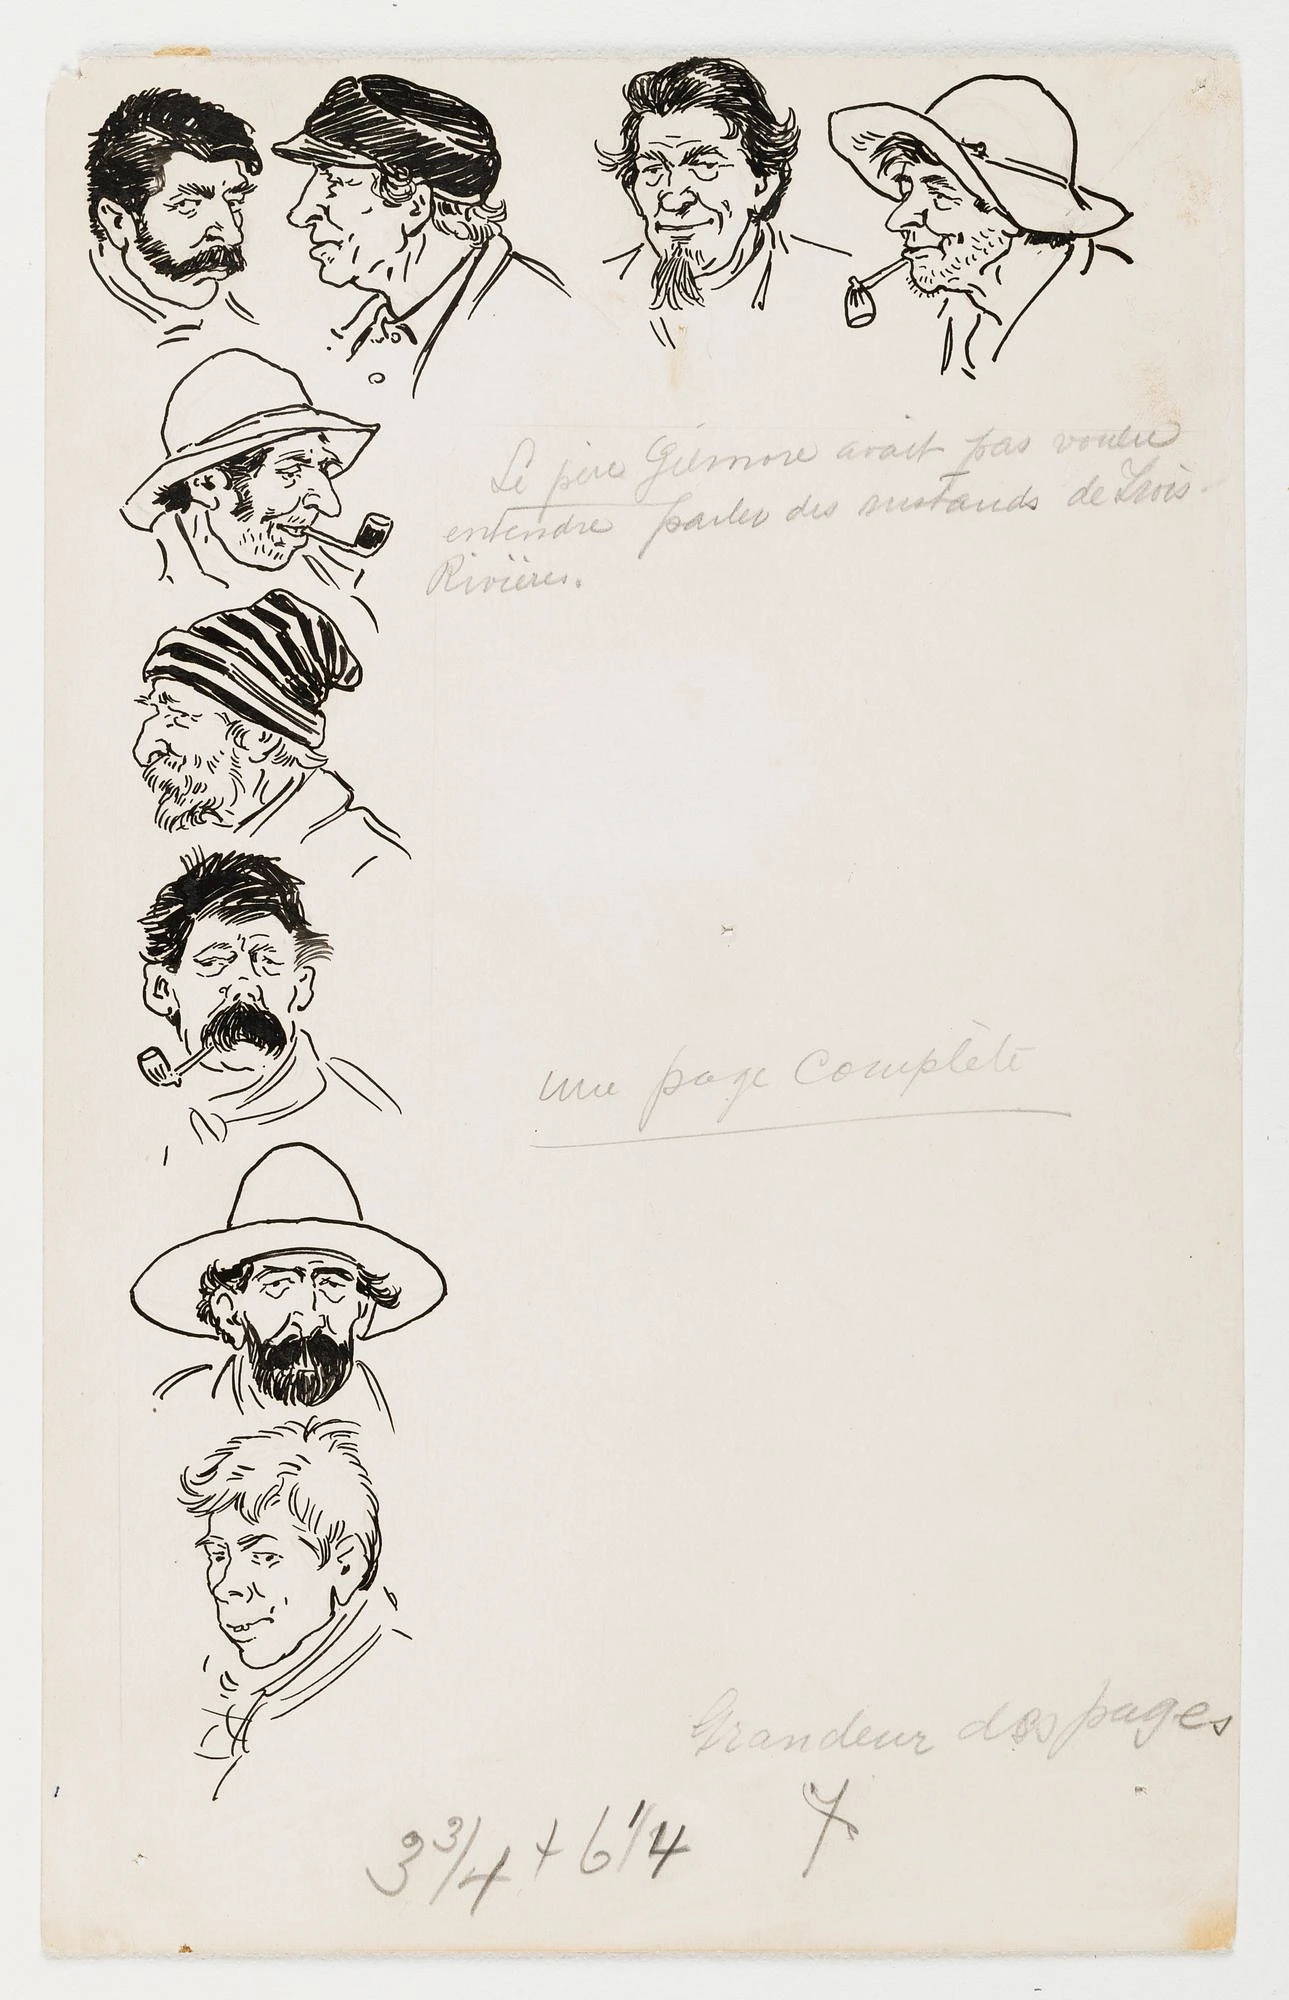 Le père Gilmore avait pas voulu
entendre parler des rustauds de Trois-
Rivières.
une page complète
Grandeur des pages
3 3/4 + 6 1/4